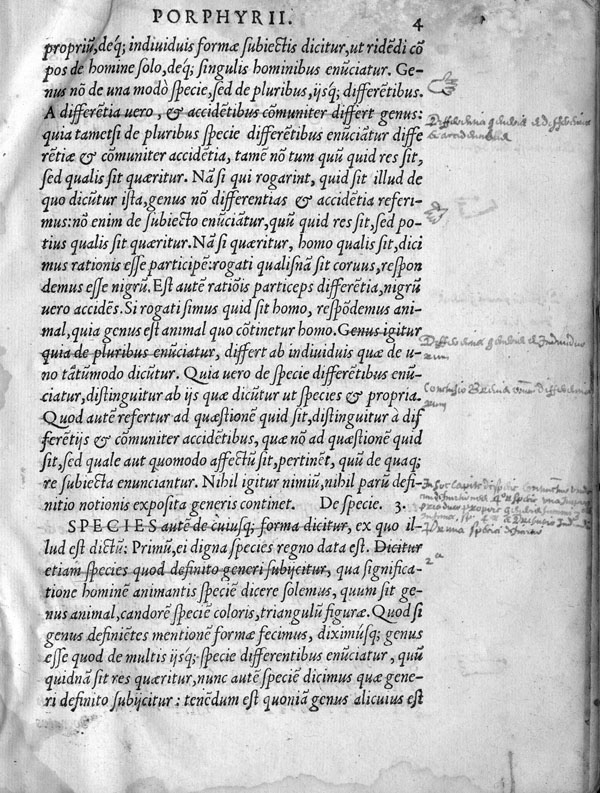 PORPHYRII. 4
propriũ, deq; indiuiduis formæ subiectis dicitur, ut ridẽdi cõ
pos de homine solo, deq; singulis hominibus enũciatur. Ge-
nus nõ de una modò specie, sed de pluribus, ijsq; differẽtibus.
A differẽtia uero, & accidẽtibus cõmuniter differt genus:
quia tametsi de pluribus specie differẽtibus enũciãtur diffe
rẽtiæ & cõmuniter accidẽtia, tamẽ nõ tum quũ quid res sit,
sed qualis sit quæritur. Nã si qui rogarint, quid sit illud de
quo dicũtur ista, genus nõ differentias & accidẽtia referi-
mus: nõ enim de subiecto enũciãtur, quũ quid res sit, sed po-
tius qualis sit quæritur. Nã si quæritur, homo qualis sit, dici
mus rationis esse participẽ: rogati qualisnã sit coruus, respon
demus esse nigrũ. Est autẽ ratiõis particeps differẽtia, nigrũ
uero accidẽs. Si rogati simus quid sit homo, respõdemus ani-
mal, quia genus est animal quo cõtinetur homo. Genus igitur
quia de pluribus enũciatur, differt ab indiuiduis quæ de u-
no tãtũmodo dicũtur. Quia uero de specie differẽtibus enũ-
ciatur, distinguitur ab ijs quæ dicũtur ut species & propria.
Quod autẽ refertur ad quæstionẽ quid sit, distinguitur à dif
ferẽtijs & cõmuniter accidẽtibus, quæ nõ ad quæstionẽ quid
sit, sed quale aut quomodo affectũ sit, pertinẽt, quũ de quaq;
re subiecta enunciantur. Nihil igitur nimiũ, nihil parũ defi-
nitio notionis exposita generis continet. De specie. 3.
SPECIES autẽ de cuiusq; forma dicitur, ex quo il-
lud est dictũ: Primũ, ei digna species regno data est. Dicitur
etiam species quod definito generi subijcitur, qua significa-
tione hominẽ animantis speciẽ dicere solemus, quum sit ge-
nus animal, candorẽ speciẽ coloris, triangulũ figuræ. Quod si
genus definiẽtes mentionẽ formæ fecimus, diximusq; genus
esse quod de multis ijsq; specie differentibus enũciatur, quũ
quidnã sit res quæritur, nunc autẽ speciẽ dicimus quæ gene-
ri definito subijcitur: tenẽdum est quoniã genus alicuius est
2ª